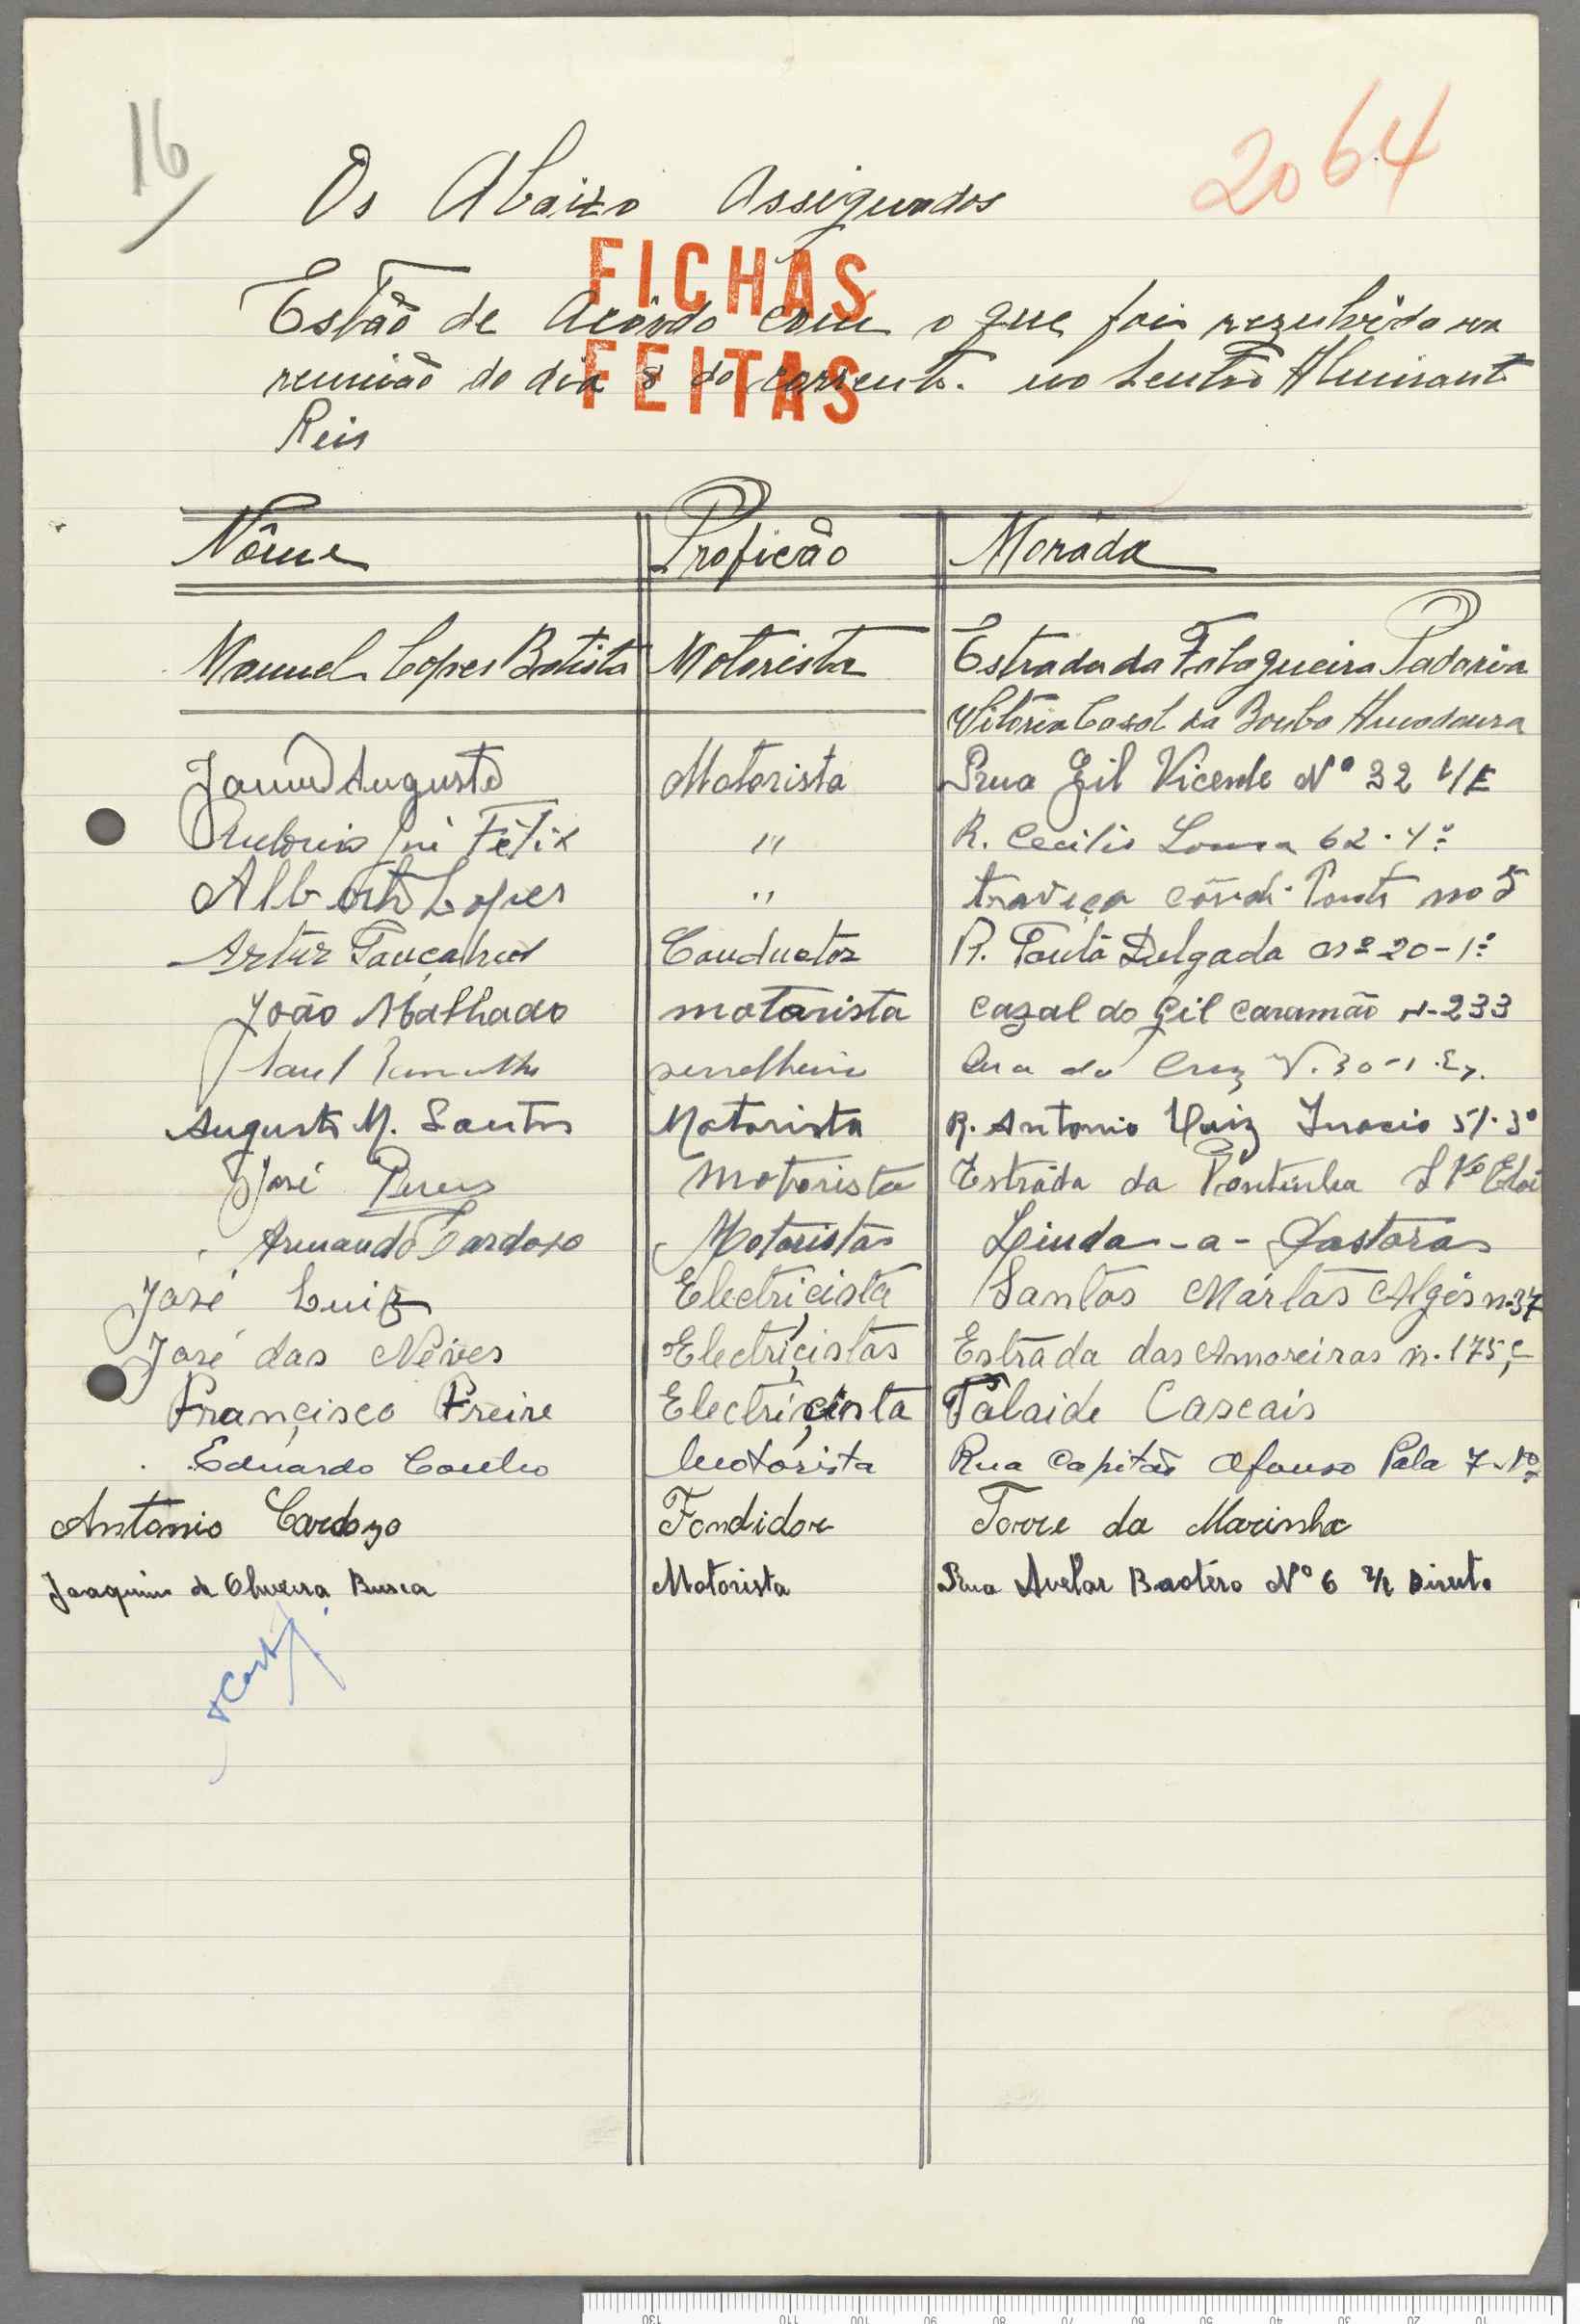 16
2064
Os Abaixo Assignados
FICHAS
Estão de Acôrdo com o que foi rezulvido na
FEITAS
reunião do dia 8 do corrente. no Centro Almirante
Reis
Nôme Profição Moráda
Manuel Lopes Batista Motorista Estrada da Falagueira Padaria
Vitoria Casal da Bomba Amadaura
Augusto Motorista Rua Gil Vicente Nº 32 1/E
Antonio José Felix " R. Cecilio Sousa 62-4º
Alberto Lopes " traveça Conde Ponte no 5
Artur Conductor R. Delgada nº 20-1º
João Malhado motorista Cazal do Gil Caramão N-233
Saul serralheiro Rua da Cruz N. 30-1. Ex.
Augusto M. Santos Motorista R. Antonio Luiz Inacio 51-3º
José Peres Motorista Estráda da Pontinha
Armando Cardoso Motorista Linda-a-Pastora
José Luiz Electricista Santos Mártas Algés n. 37
José das Neves Electriçistas Estrada das Amoreiras n. 175
Françisco Freire Electriçista Talaide Cascais
Eduardo Coelho Motorista Rua Capitão Afonso Pala 7
Antonio Cardozo Fondidor Torre da Marinha
Joaquim de Oliveira Motorista Rua Avelar Baotéro Nº 6 Direito